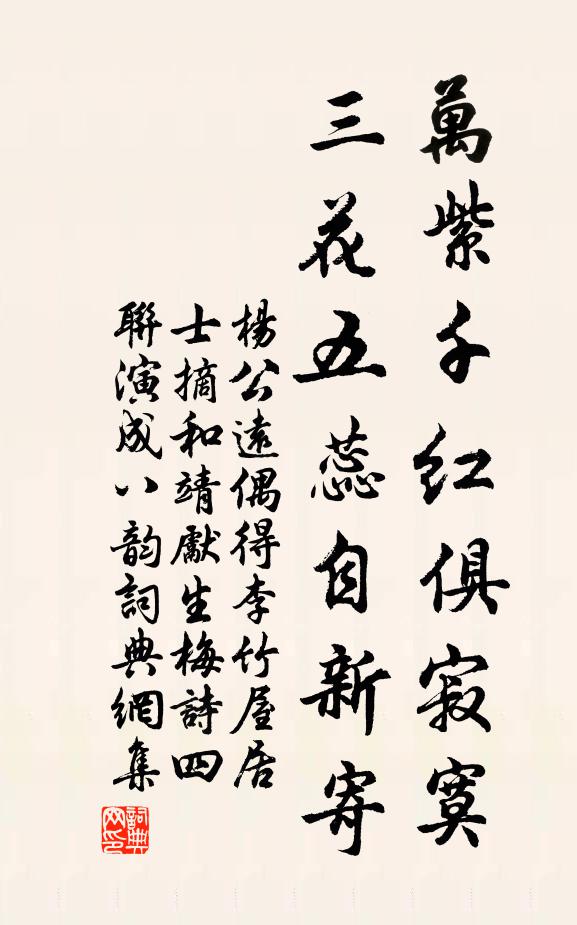 萬紫千红俱寂寞
三花五蕊自新寄
楊公遠偶得李竹屋居
士摘和靖獻生梅詩四
聯演成八韵詞典網集
詞典網印